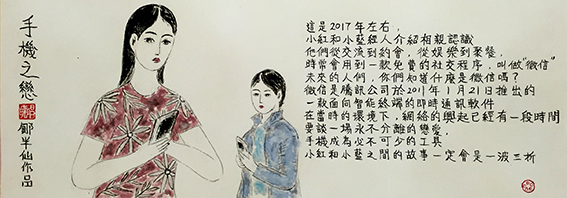 手機之戀
鄺半仙作品
這是2017年左右，
小紅和小藝經人介紹相親認識
他們從交流到約會，從娛樂到聚餐，
時常會用到一款免費的社交程序，叫做"微信"
未來的人們，你們知道什麼是微信嗎？
微信是騰訊公司於2011年1月21日推出的
一款面向智能終端的即時通訊軟件
在當時的環境下，網絡的興起已經有一段時間
要談一場永不分離的戀愛，
手機成為必不可少的工具
小紅和小藝之間的故事一定會是一波三折